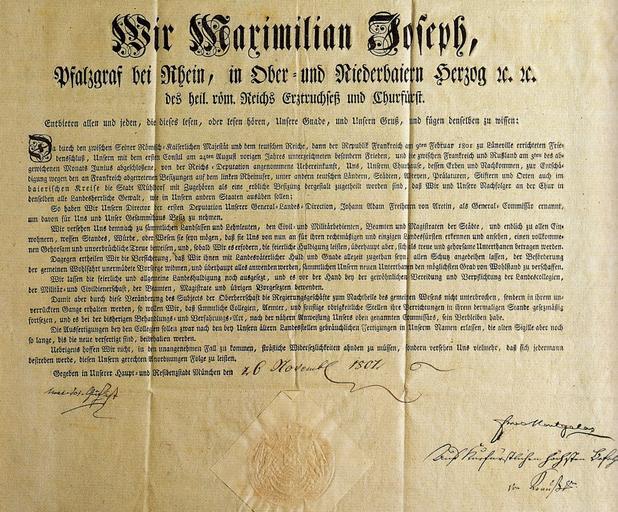 Wir Maximilian Joseph,
Pfalzgraf bei Rhein, in Ober- und Niederbaiern Herzog ꝛc. ꝛc.
des heil. röm. Reichs Erztruchseß und Churfürst.
Entbieten allen und jeden, die dieses lesen, oder lesen hören, Unsere Gnade, und Unsern Gruß, und fügen denselben zu wissen:
Da durch den zwischen Seiner Römisch-Kaiserlichen Majestät und dem teutschen Reiche, dann der Republik Frankreich am 9ten Februar 1801 zu Lüneville errichteten Frie-
densschluß, Unsern mit dem ersten Consul am 24sten August vorigen Jahres unterzeichneten besondern Frieden, und die zwischen Frankreich und Rußland am 3ten des ab-
gewichenen Monats Junius abgeschlossene, von der Reichs-Deputation angenommene Uebereinkunft, Uns, Unserm Churhause, dessen Erben und Nachkommen, zur Entschä-
digung wegen den an Frankreich abgetrettenen Besitzungen auf dem linken Rheinufer, unter andern teutschen Ländern, Städten, Abteyen, Prälaturen, Stiftern und Orten auch im
baierischen Kreise die Stadt Mühldorf mit Zugehören als eine erbliche Besitzung dergestalt zugetheilt worden sind, daß Wir und Unsere Nachfolger an der Chur in
denselben alle Landesherrliche Gewalt, wie in Unsern andern Staaten ausüben sollen:
So haben Wir Unsern Director der ersten Deputation Unserer General-Landes-Direction, Johann Adam Freiherrn von Aretin, als General-Commissär ernannt,
um davon für Uns und Unser Gesammthaus Besitz zu nehmen.
Wir versehen Uns demnach zu sämmtlichen Landsassen und Lehenleuten, den Civil- und Militärbedienten, Beamten und Magistraten der Städte, und endlich zu allen Ein-
wohnern, wessen Standes, Würde, oder Wesen sie seyn mögen, daß sie Uns von nun an für ihren rechtmäßigen und einzigen Landesfürsten erkennen und ansehen, einen vollkomme-
nen Gehorsam und unverbrüchliche Treue beweisen, und, sobald Wir es erfordern, die feierliche Huldigung leisten, überhaupt aber, sich als treue und gehorsame Unterthanen betragen werden.
Dagegen ertheilen Wir die Versicherung, daß Wir ihnen mit Landesväterlicher Huld und Gnade allezeit zugethan seyn, allen Schutz angedeihen lassen, der Beförderung
der gemeinen Wohlfahrt unermüdete Vorsorge widmen, und überhaupt alles anwenden werden, sämmtlichen Unsern neuen Unterthanen den möglichsten Grad von Wohlstand zu verschaffen.
Wir lassen die feierliche und allgemeine Landeshuldigung noch ausgesetzt, und es vor der Hand bey der gewöhnlichen Vereidung und Verpflichtung der Landescollegien,
der Militär- und Civildienerschaft, der Beamten, Magistrate und übrigen Vorgesetzten bewenden.
Damit aber durch diese Veränderung des Subjects der Oberherrschaft die Regierungsgeschäfte zum Nachtheile des gemeinen Wesens nicht unterbrochen, sondern in ihrem un-
verrückten Gange erhalten werden, so wollen Wir, daß sämmtliche Collegien, Aemter, und sonstige obrigkeitliche Stellen ihre Verrichtungen in ihrem dermaligen Stande gesetzmäßig
fortsetzen, und es bei der bisherigen Behandlungs- und Verfassungs-Art, nach der nähern Anweisung Unsers oben genannten Commissärs, sein Verbleiben habe.
Die Ausfertigungen bey den Collegien sollen zwar nach den bey Unsern ältern Landesstellen gebräuchlichen Fertigungen in Unserem Namen erlassen, die alten Sigille aber noch
so lange, bis die neue verfertigt sind, beibehalten werden.
Uebrigens hoffen Wir nicht, in den unangenehmen Fall zu kommen, sträfliche Widersetzlichkeiten ahnden zu müssen, sondern versehen Uns vielmehr, daß sich jedermann
bestreben werde, diesen Unsern gerechten Anordnungen Folge zu leisten.
Gegeben in Unserer Haupt- und Residenzstadt München den 26 Novemb. 1802
Max. Jos. Churfürst
Auf Kurfürstlichen höchsten Befehl